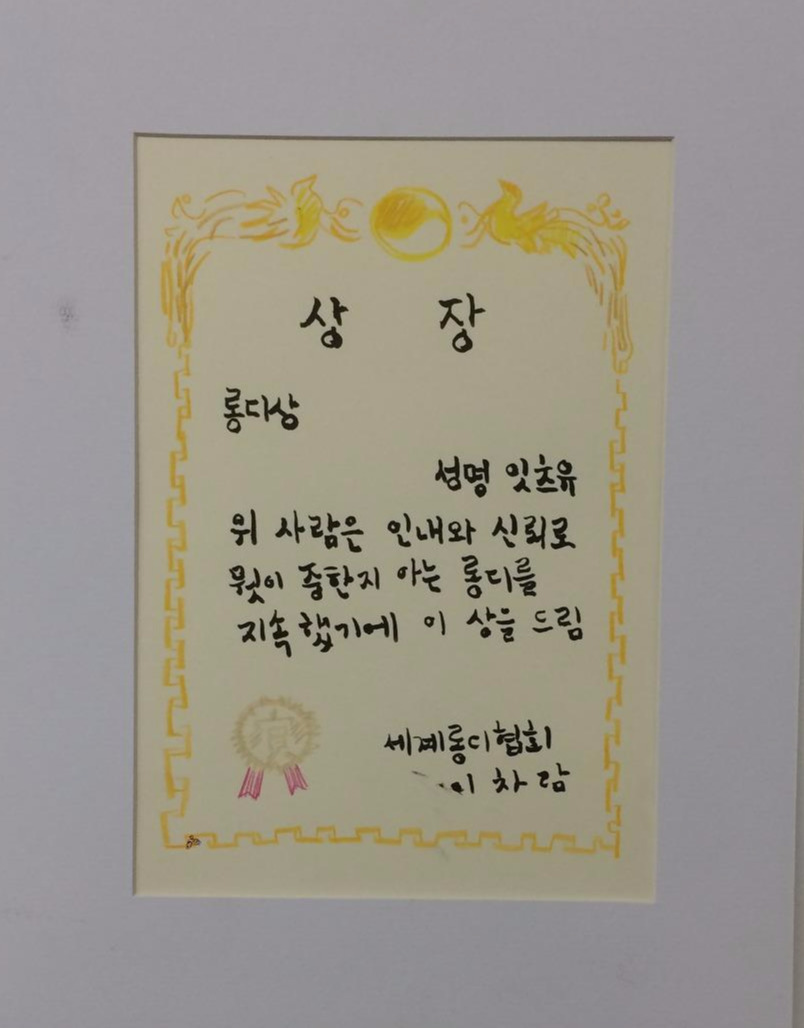 상 장
롱디상
성명 잇츠유
위 사람은 인내와 신뢰로
뭣이 중한지 아는 롱디를
지속했기에 이 상을 드림
세계롱디협회
이 차 람